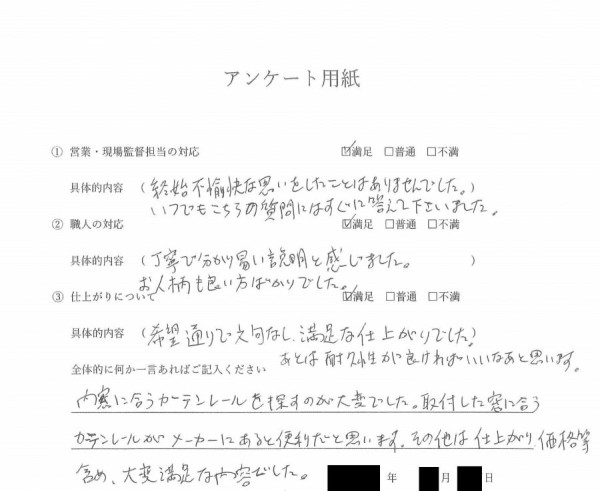 アンケート用紙
① 営業・現場監督担当の対応 ☑満足 □普通 □不満
具体的内容 (終始不愉快な思いをしたことはありませんでした。)
いつでもこちらの質問にはすぐに答えて下さいました。
② 職人の対応 ☑満足 □普通 □不満
具体的内容 (丁寧で分かり易い説明と感じました。)
お人柄も良い方ばかりでした。
③ 仕上がりについて ☑満足 □普通 □不満
具体的内容 (希望通りで文句なし、満足な仕上がりでした)
あとは耐久性が良ければいいなあと思います。
全体的に何か一言あればご記入ください
内窓に合うカーテンレールを探すのが大変でした。取付した窓に合う
カーテンレールがメーカーにあると便利だと思います。その他は仕上がり価格等
含め、大変満足な内容でした。
年 月 日